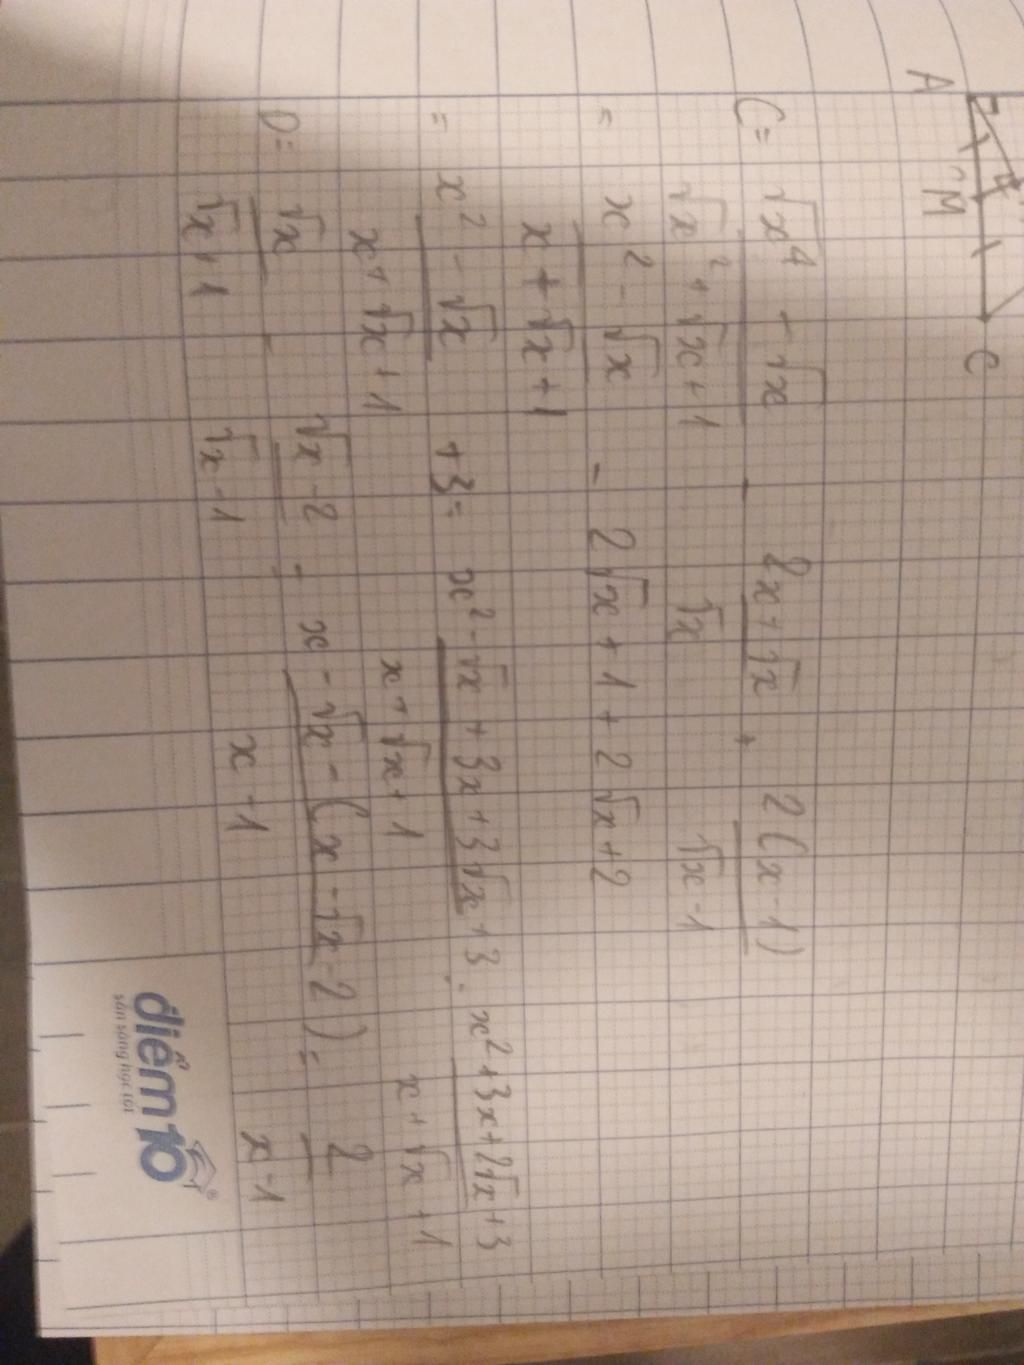 A M C
C = √x⁴ - √x / √x² + √x + 1 - 2x + √x / √x + 2(x-1) / √x - 1
= x² - √x / x + √x + 1 - 2√x + 1 + 2√x + 2
= x² - √x / x + √x + 1 + 3 = x² - √x + 3x + 3√x + 3 / x + √x + 1 = x² + 3x + 2√x + 3 / x + √x + 1
D = √x / √x + 1 - √x - 2 / √x - 1 = x - √x - (x - √x - 2) / x + 1 = 2 / x - 1
điểm 10
sẵn sàng học tốt